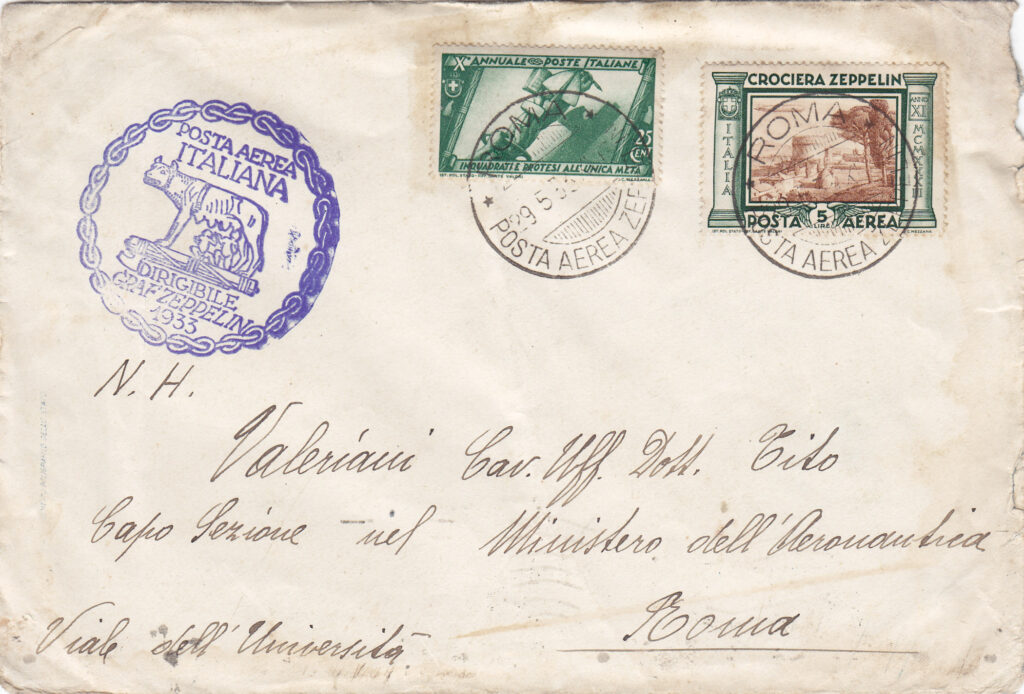 POSTA AEREA
ITALIANA
DIRIGIBILE
GRAF ZEPPELIN
1933
X° ANNUALE POSTE ITALIANE
25
CENT
INQUADRATI E PROTESI ALL'UNICA META
ROMA
29 5 33
POSTA AEREA ZEP
CROCIERA ZEPPELIN
ITALIA
ANNO XI
POSTA 5 LIRE AEREA
ROMA
POSTA AEREA
N. H.
Valeriani Cav. Uff. Dott. Tito
Capo Sezione nel Ministero dell'Aeronautica
Viale dell'Università
Roma